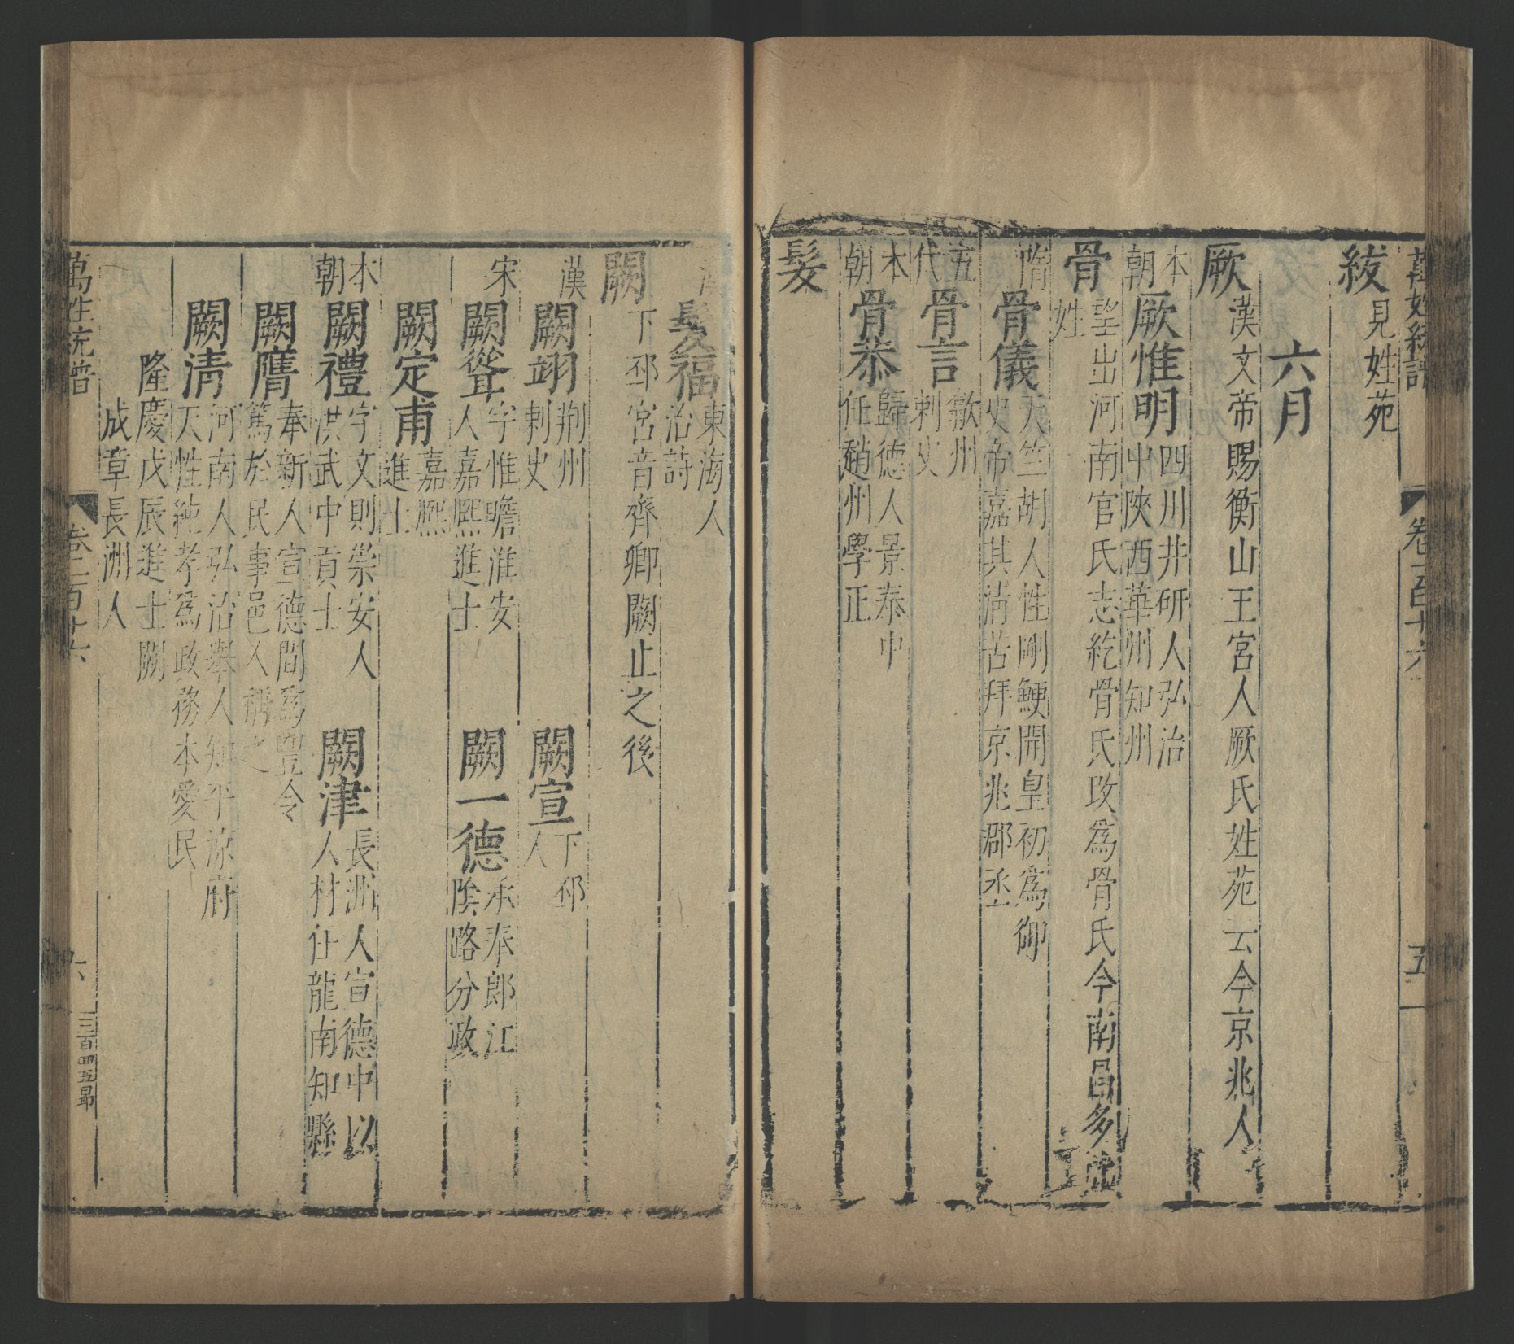 萬姓統譜
卷一百十六
五
紱見姓苑
六月
厥漢文帝賜衡山王宮人厥氏姓苑云今京兆人
本朝
厥惟明四川井研人弘治中陝西華州知州
骨望出河南官氏志紇骨氏改為骨氏今南昌多此姓
隋
骨儀天竺胡人性剛鯁開皇初為御史帝嘉其清苦拜京兆郡丞
五代
骨言歙州刺史
本朝
骨恭歸德人景泰中任趙州學正
髮
漢
髮福東海人治詩
闕下邳宮音齊卿闕止之後
漢
闕翊荊州刺史
闕宣下邳人
宋
闕聳字惟瞻淮安人嘉熙進士
闕一德承奉郎江陰路分政
闕定甫嘉熙進士
本朝
闕禮字文則崇安人洪武中貢士
闕津長洲人宣德中以人材仕龍南知縣
闕膺奉新人宣德間為豐令篤於民事邑人稱之
闕清河南人弘治舉人知平涼府天性純孝為政務本愛民
隆慶戊辰進士闕
成章長洲人
萬姓統譜
卷一百十六
六
三百四五昻